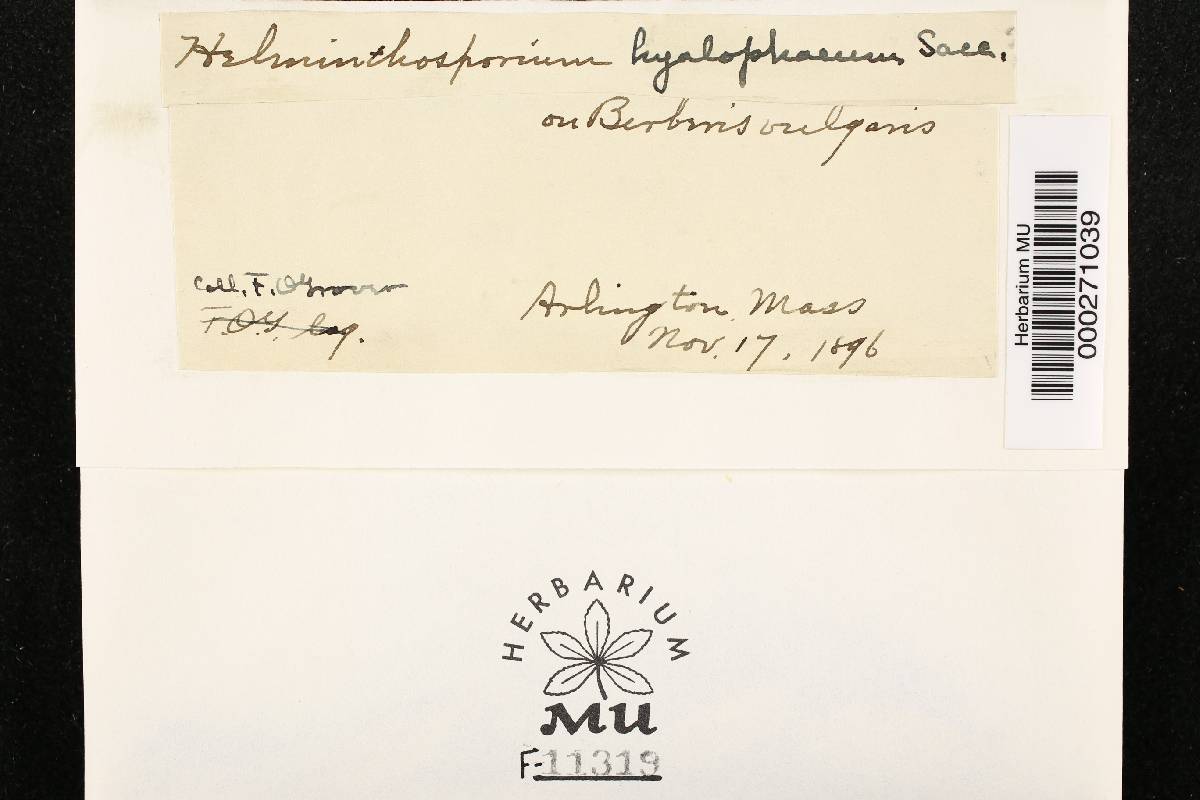 Helminthosporium hyalophaeum Sacc.
on Berberis vulgaris
Coll. F. O Grover
F.O.G. Leg.
Arlington, Mass
Nov. 17, 1896
Herbarium MU
000271039
HERBARIUM
MU
F-11319